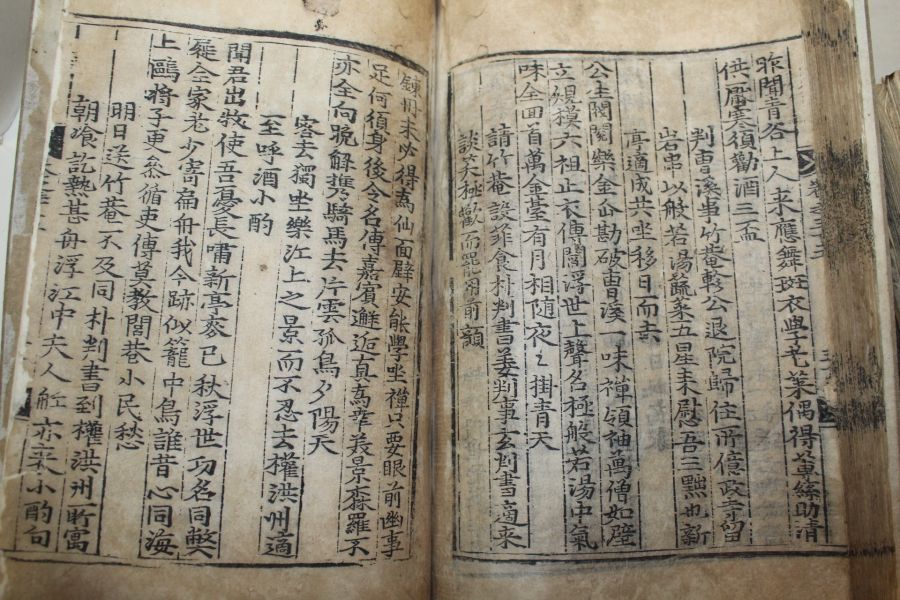 昨聞靑谷上人來應舞斑衣學老萊偶得蓴絲助淸
供屠寒須勸酒三盃
判曹溪事竹菴軫公退院歸住所億政寺留
岩串以般若湯蔬菜五星來慰吾三黜也新
亭適成共坐移日而去
公生閥閱樂金仚勘破曹溪一味禪領袖萬僧如壁
立規模六祖止衣傳閻浮世上聲名極般若湯中氣
味全回首萬金臺有月相隨夜々掛靑天
請竹菴設菲食朴判書萎判事玄判書適來
談笑極歡而罷用前韻
鍊丹未必得爲仙面壁安能學坐禪只要眼前幽事
足何須身後令名傳嘉賓邂逅眞爲幸美景森羅不
亦全向晩解携騎馬去片雲孤鳥夕陽天
客去獨坐樂江上之景而不忍去權洪州適
至呼酒小酌
聞君出牧使吾憂長嘯新亭麥已秋浮世功名同弊
屣全家老少寄扁舟我今跡似籠中鳥誰昔心同海
上鷗將子更參循吏傳莫敎閭巷小民愁
明日送竹菴不及同朴判書到權洪州所寓
朝飡訖熱甚舟浮江中夫人 亦來小酌句